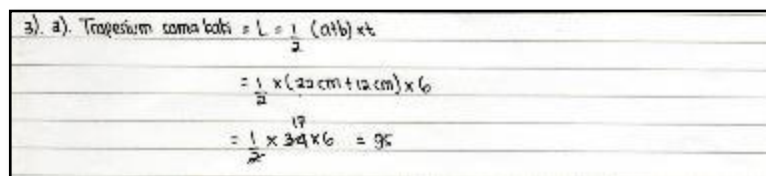 3). a). Trapesium sama kaki = L = 1/2 (a+b) x t
= 1/2 x (22 cm + 12 cm) x 6
17
= 1/2 x 34 x 6 = 95